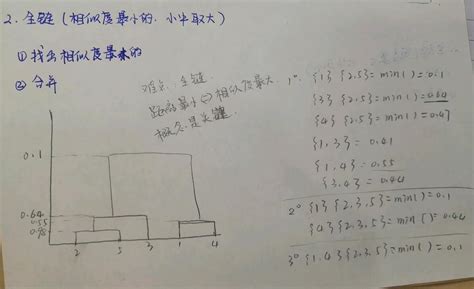 2. 全链(相似度最小的，小中取大)
① 找出相似度最大的
② 合并
难点：全链
距离最小⇔相似度最大
概念是关键
1° {1}{2.5}=min( )=0.1
{3}{2.5}=min( )=0.64
{4}{2.5}=min( )=0.47
{1.3}=0.41
{1.4}=0.55
{3.4}=0.44
2° {1}{2.3.5}=min( )=0.1
{4}{2.3.5}=min( )=0.44
3° {1.4}{2.3.5}=min( )=0.1
0.1
0.64
0.55
2 5 3 1 4